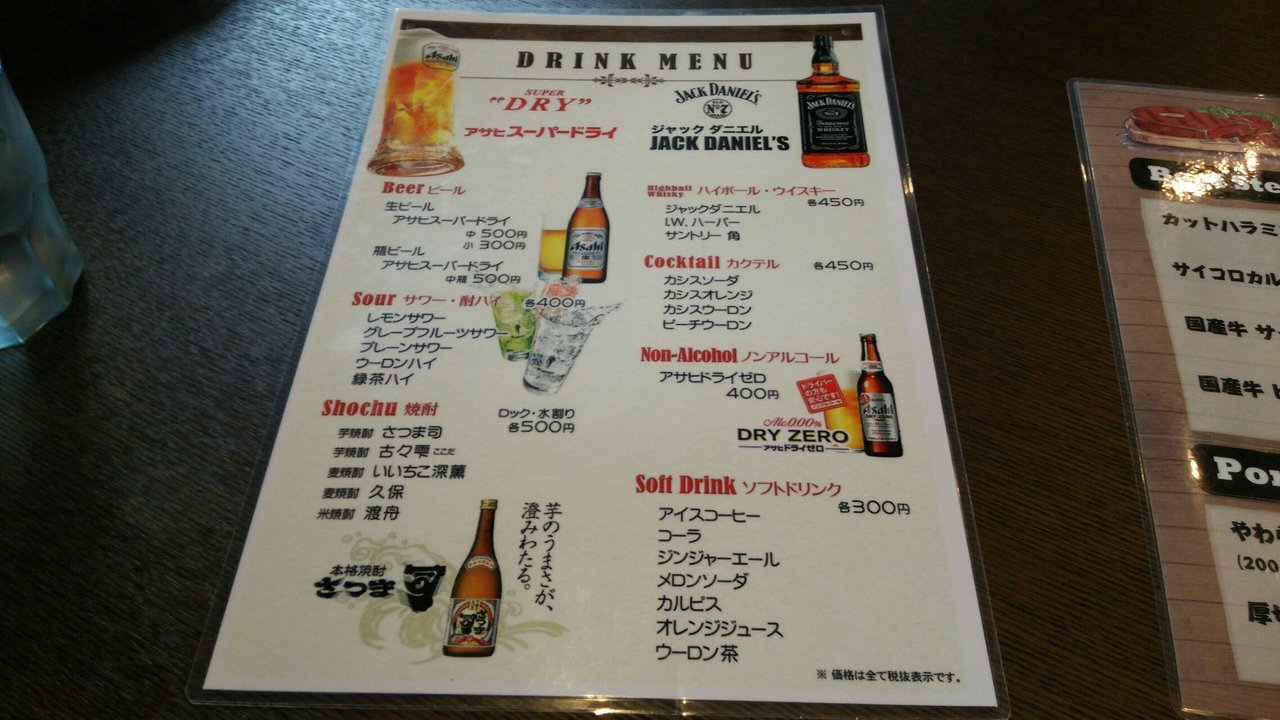 DRINK MENU
Asahi
SUPER
"DRY"
アサヒスーパードライ
JACK DANIEL'S
OLD
Nº7
BRAND
ジャック ダニエル
JACK DANIEL'S
JACK DANIEL'S
OLD
Nº7
Tennessee
WHISKEY
Beer ビール
生ビール
アサヒスーパードライ
中 500円
小 300円
瓶ビール
アサヒスーパードライ
中瓶 500円
Asahi
Sour サワー・酎ハイ 各400円
レモンサワー
グレープフルーツサワー
プレーンサワー
ウーロンハイ
緑茶ハイ
Shochu 焼酎
ロック・水割り
各500円
芋焼酎 さつま司
芋焼酎 古々雫 ここだ
麦焼酎 いいちこ深薫
麦焼酎 久保
米焼酎 渡舟
本格焼酎
さつま司
芋のうまさが、
澄みわたる。
さつま司
Highball Whisky ハイボール・ウイスキー
各450円
ジャックダニエル
I.W. ハーパー
サントリー 角
Cocktail カクテル 各450円
カシスソーダ
カシスオレンジ
カシスウーロン
ピーチウーロン
Non-Alcohol ノンアルコール
アサヒドライゼロ
400円
ドライバー
の方も
安心です!
ノンアルコール
Alc.0.00%
DRY ZERO
アサヒドライゼロ
Asahi
DRY ZERO
Soft Drink ソフトドリンク
各300円
アイスコーヒー
コーラ
ジンジャーエール
メロンソーダ
カルピス
オレンジジュース
ウーロン茶
※ 価格は全て税抜表示です。
カットハラミ
サイコロカル
国産牛 サ
国産牛 ヒ
Por
やわら
(200
厚切